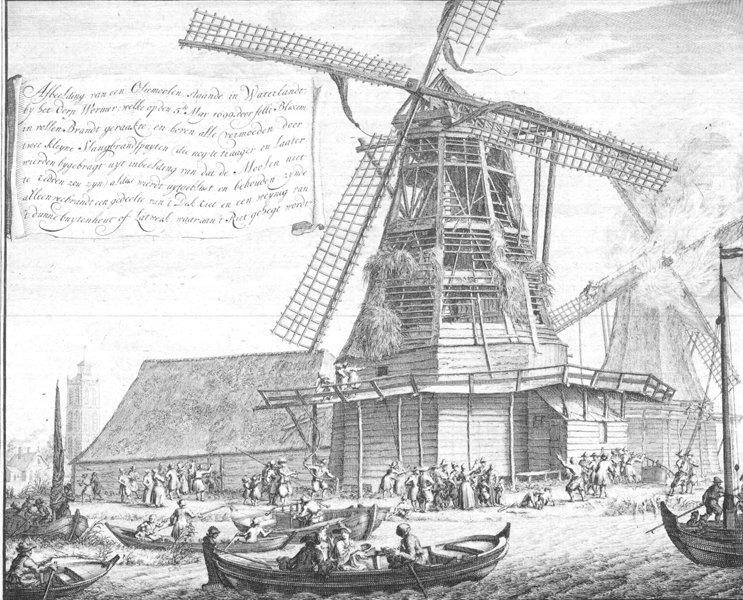 Afbeelding van een Oliemoolen staande in Waterlandt:
by het Dorp Wormer; welke op den 5.de May 1699 door felle Blixem
in vollen Brandt geraakte, en boven alle vermoeden door
twee kleyne Slangbrandspuyten (die nog te traager en laater
wierden bygebragt uyt inbeelding van dat de Moolen niet
te redden zou zyn) aldus wierdt uytgeblust en behouden zynde
alleen verbrandt een gedeelte van't Dak Riet en een weynig van
't dunne buytenhout of Latwerk, waar aan 't Riet gehegt wordt.